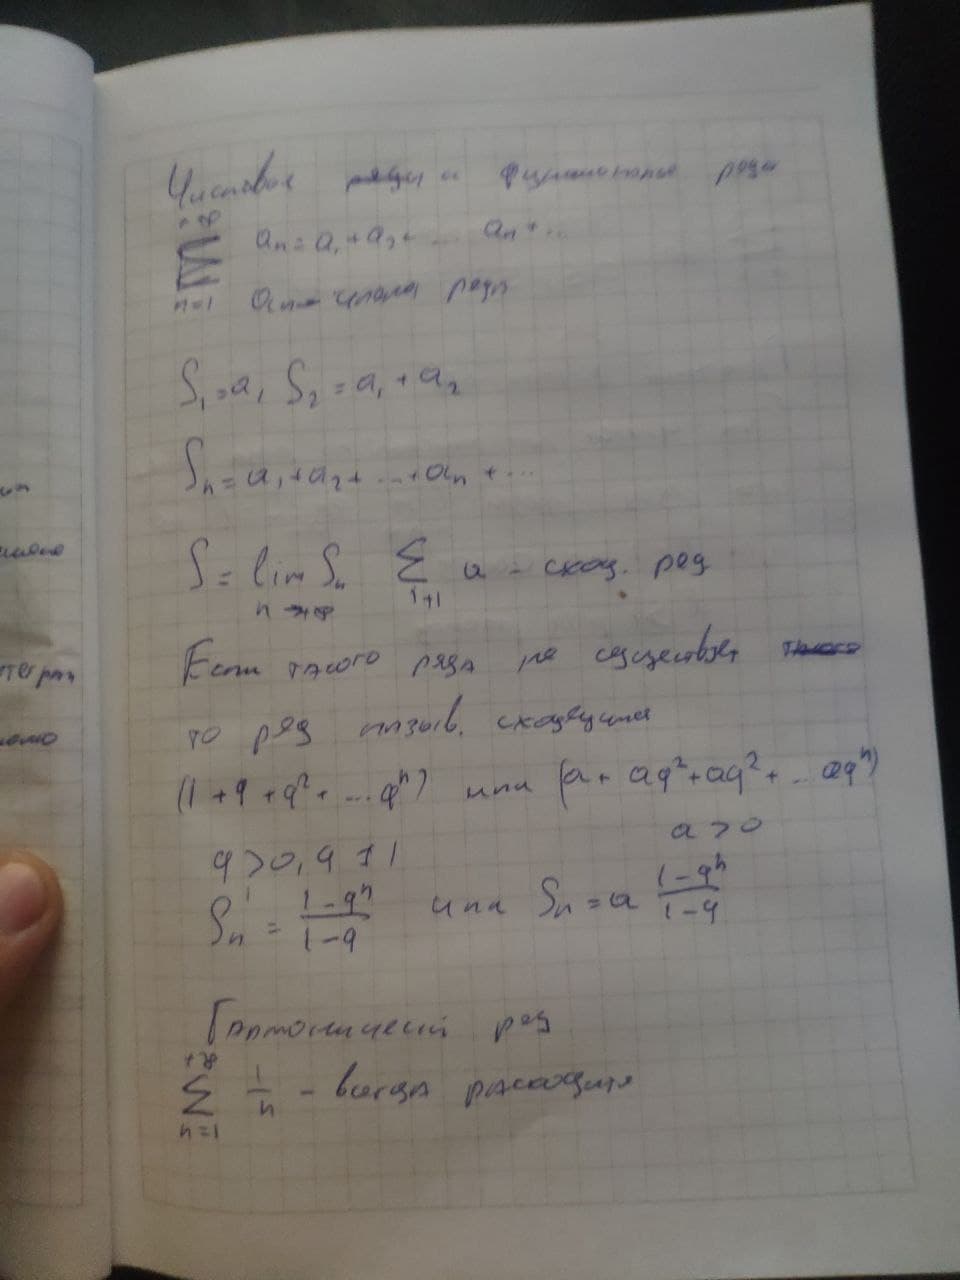 Числовые ряды и функциональные ряды
+∞
∑ aₙ = a₁ + a₂ + ... aₙ + ...
n=1 aₙ - члены ряда
S₁ = a₁ S₂ = a₁ + a₂
Sₙ = a₁ + a₂ + ... + aₙ + ...
S = lim Sₙ ∑ a - сход. ряд
n → +∞ 1+1
Если такого ряда не существует
то ряд назыв. сходящимся
(1 + q + q² + ... qⁿ) или (a + aq² + aq² + ... aqⁿ)
a > 0
q > 0, q ≠ 1
Sₙ = (1-qⁿ)/(1-q) или Sₙ = a (1-qⁿ)/(1-q)
Гармонический ряд
+∞
∑ 1/n - всегда расходится
n=1